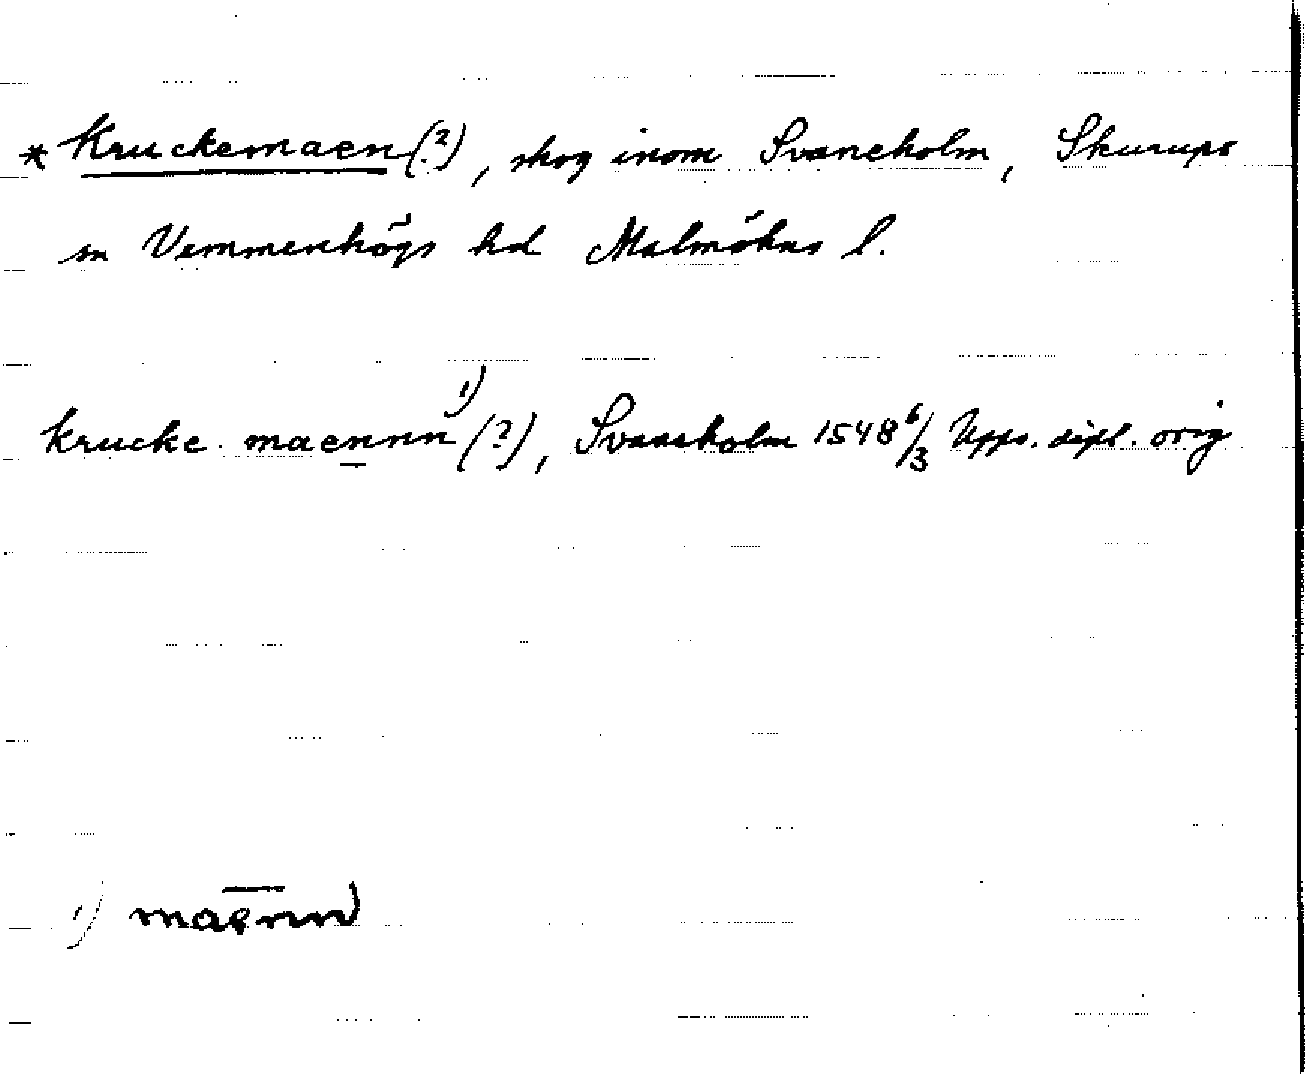 * Kruckemaen (?), skog inom Svaneholm, Skurups
sn Vemmenhögs hd Malmöhus l.
krucke maennn ¹) (?), Svaneholm 1548 6/3 Upps. dipl. orig
1) maēnn